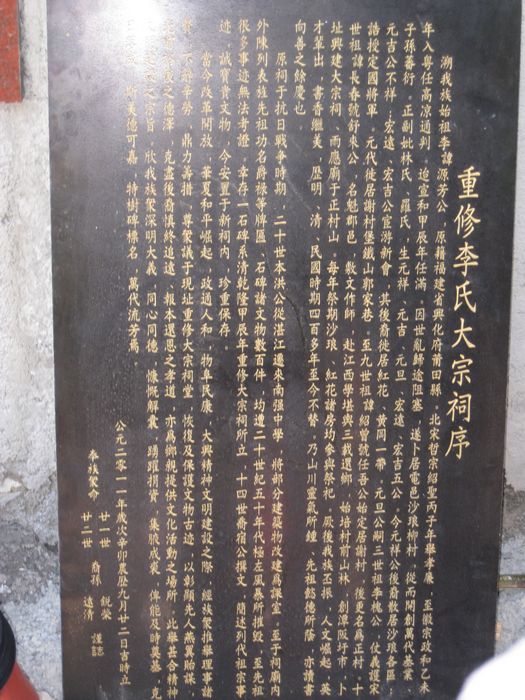 重修李氏大宗祠序
溯我族始祖李諱源芳公，原籍福建省興化府莆田縣，北宋哲宗紹聖丙子年舉孝廉，至徽宗政和乙未
年入粵任高涼通判，迨宣和甲辰年任滿，因世亂歸途阻塞，遂卜居電邑沙琅柳村，從而開創萬代基業，
子孫蕃衍，正副妣林氏、羅氏，生元祥、元吉、元旦、宏遠、宏吉五公，今元祥公後裔散居沙琅各區，
元吉公不祥，宏遠、宏吉公宦游新會，其後裔徙居紅花、黃同一帶，元旦公嗣三世祖李槐公，仗義護
誥授定國將軍，元代徙居謝村堡鐵山郭家巷，至九世祖諱紹曾號任吾公始定居謝村，後更名為正村，十
世祖諱長春號舒來公，名魁郡邑，敷文作師，赴江西學堪輿三載還鄉，始培村前山林，創潭阪圩市，卜
址興建大宗祠，雨應廟于正村山，每年祭期沙琅、紅花諸房均參與祭祀，厥後我族丕振，人文崛起，英
才輩出，書香繼美，歷明、清、民國時期四百多年至今不替，乃山川靈氣所鍾，先祖懿德所蔭，亦讀書
向善之餘慶也。
原祠于抗日戰爭時期，二十世本洪公從湛江遷來南強中學，將部分建築物改建為課室，至于祠廟內
外陳列表旌先祖功名爵祿等牌匾、石碑諸文物數百件，均遭二十世紀五十年代極左風暴所摧毀，至先祖
很多事迹無法考證，幸存一石碑系清乾隆甲辰年重修大宗祠所立，十四世裔宿公撰文，簡述列代祖宗事
迹，誠寶貴文物，今安置于新祠內，珍重保存。
當今改革開放，華夏和平崛起，政通人和，物阜民康，大興精神文明建設之際，經族眾推舉理事諸
賢，不辭辛勞，鼎力善措，尊眾議于現址重修大宗祠堂，恢復及保護文物古迹，以彰顯先人燕翼貽謀，
之德澤，克盡後裔慎終追遠，報本還恩之孝道，亦為鄉親提供文化活動之場所，此舉甚合精神
之宗旨，欣我族眾深明大義，同心同德，慷慨解囊，踴躍捐資，集腋成裘，俾能及時奠基，克
斯美德可嘉，特樹碑標名，萬代流芳焉。
公元二零一一年歲次辛卯農曆九月廿二日吉時立
奉族眾命 廿一世 裔孫 銳榮 謹誌
廿二世 遠清